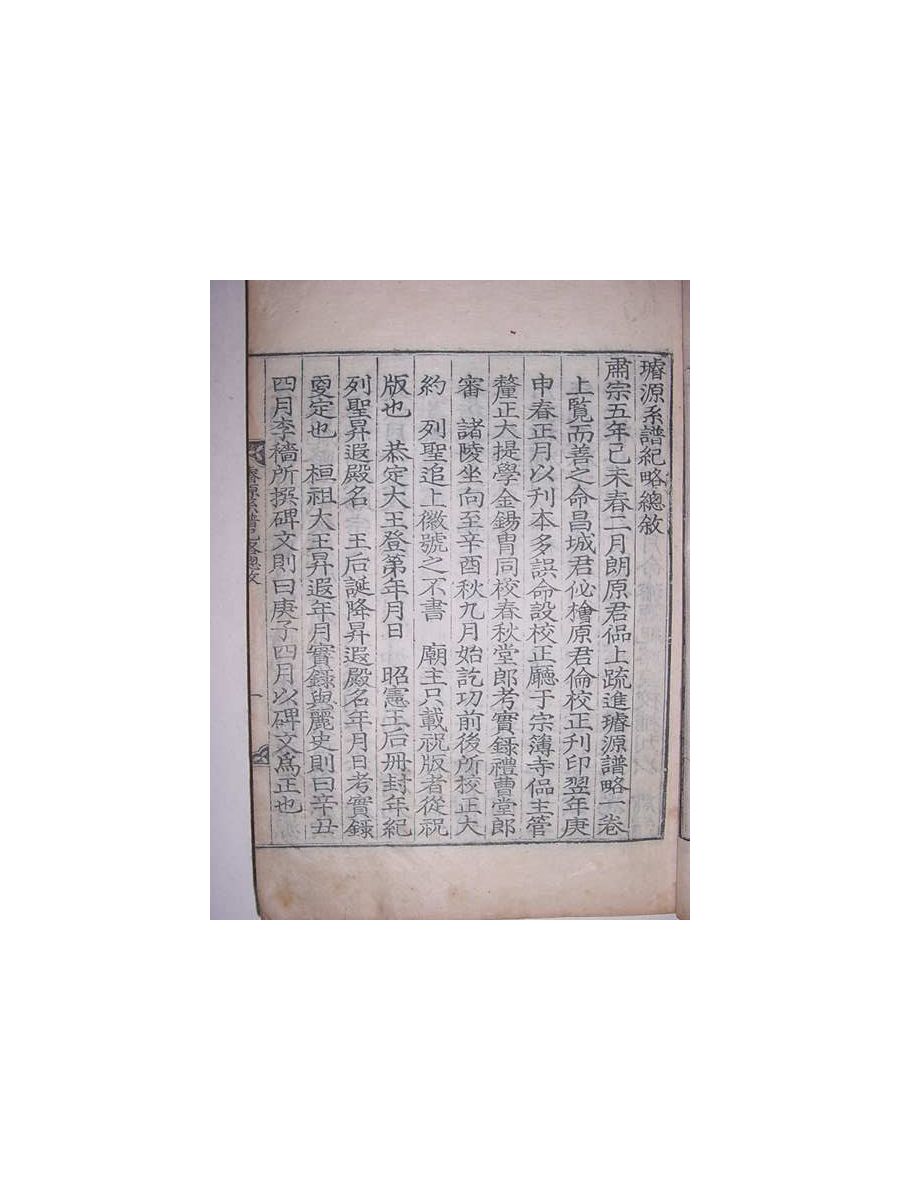 璿源系譜紀略總敘
肅宗五年己未春二月朗原君偘上疏進璿源譜略一卷
上覽而善之命昌城君佖檜原君倫校正刊印翌年庚
申春正月以刊本多誤命設校正廳于宗簿寺偘主管
釐正大提學金錫胄同校春秋堂郎考實錄禮曹堂郎
審 諸陵坐向至辛酉秋九月始訖功前後所校正大
約 列聖追上徽號之不書 廟主只載祝版者從祝
版也 恭定大王登第年月日 昭憲王后冊封年紀
列聖昇遐殿名 王后誕降昇遐殿名年月日考實錄
更定也 桓祖大王昇遐年月實錄與麗史則曰辛丑
四月李穡所撰碑文則曰庚子四月以碑文爲正也